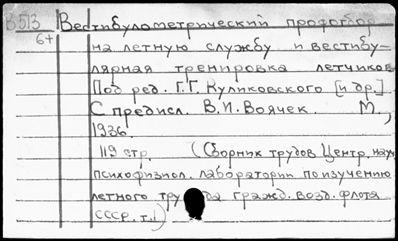 В513 Вестибулометрический профотбор
6+ на летную службу и вестибу-
лярная тренировка летчиков
Под ред. Г.Г. Куликовского [и др.]
С предисл. В.И. Воячек. М.,
1936.
119 стр. (Сборник трудов Центр. науч.
психофизиол. лаборатории по изучению
летного тру да гражд. возд. флота
СССР. т.1)